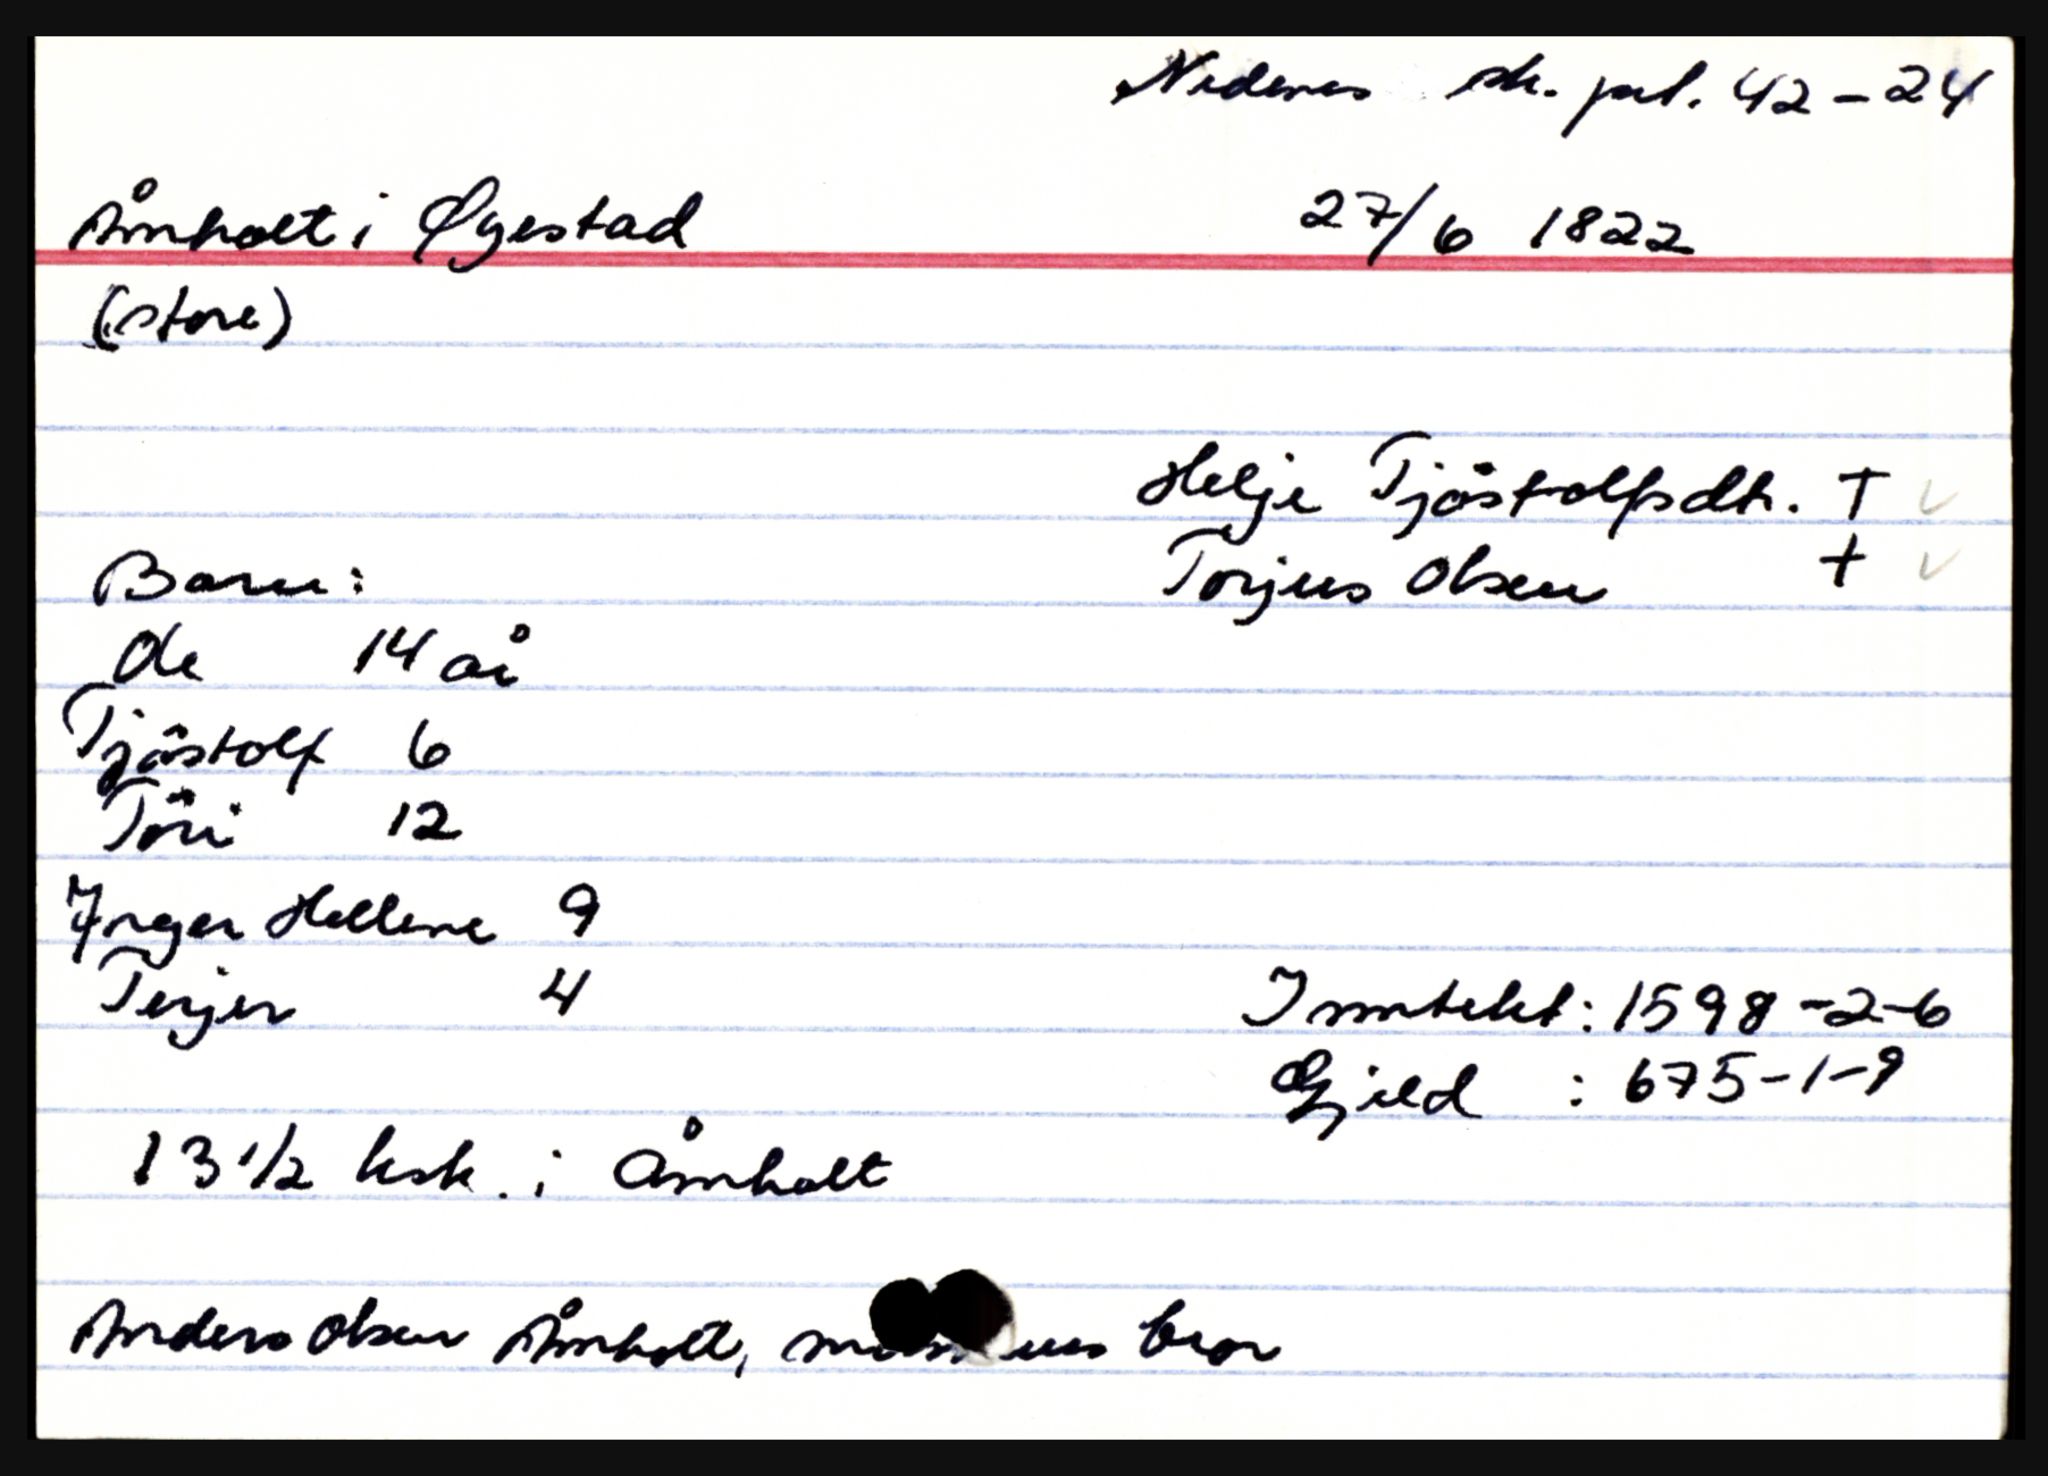 Nedenes sk. prt. 42-24
Åmholt i Øyestad 27/6 1822
(store)
Helje Tjöstolfsdtr. †
Torjus Olsen †
Barn:
Ole 14 år
Tjöstolf 6
Töri 12
Inger Hellene 9
Terjer 4
Inntekt: 1598-2-6
Gjeld : 675-1-9
13 1/2 ksk. i Åmholt
Anders Olsen Åmholt, bror